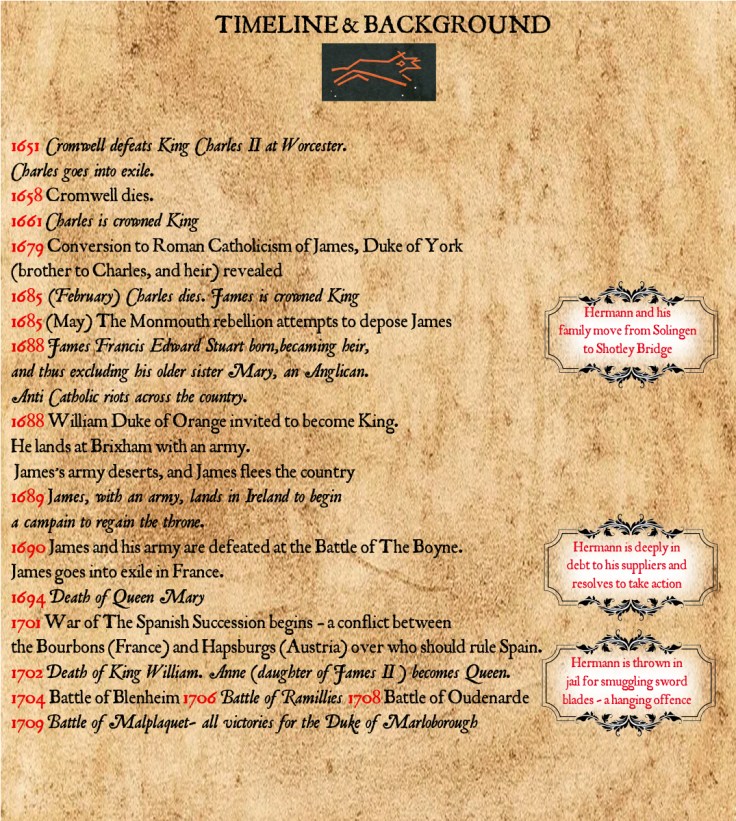 TIMELINE & BACKGROUND
1651 Cromwell defeats King Charles II at Worcester.
Charles goes into exile.
1658 Cromwell dies.
1661 Charles is crowned King
1679 Conversion to Roman Catholicism of James, Duke of York
(brother to Charles, and heir) revealed
1685 (February) Charles dies. James is crowned King
1685 (May) The Monmouth rebellion attempts to depose James
1688 James Francis Edward Stuart born,becaming heir,
and thus excluding his older sister Mary, an Anglican.
Anti Catholic riots across the country.
1688 William Duke of Orange invited to become King.
He lands at Brixham with an army.
James's army deserts, and James flees the country
1689 James, with an army, lands in Ireland to begin
a campain to regain the throne.
1690 James and his army are defeated at the Battle of The Boyne.
James goes into exile in France.
1694 Death of Queen Mary
1701 War of The Spanish Succession begins - a conflict between
the Bourbons (France) and Hapsburgs (Austria) over who should rule Spain.
1702 Death of King William. Anne (daughter of James II ) becomes Queen.
1704 Battle of Blenheim 1706 Battle of Ramillies 1708 Battle of Oudenarde
1709 Battle of Malplaquet- all victories for the Duke of Marloborough
Hermann and his
family move from Solingen
to Shotley Bridge
Hermann is deeply in
debt to his suppliers and
resolves to take action
Hermann is thrown in
jail for smuggling sword
blades - a hanging offence